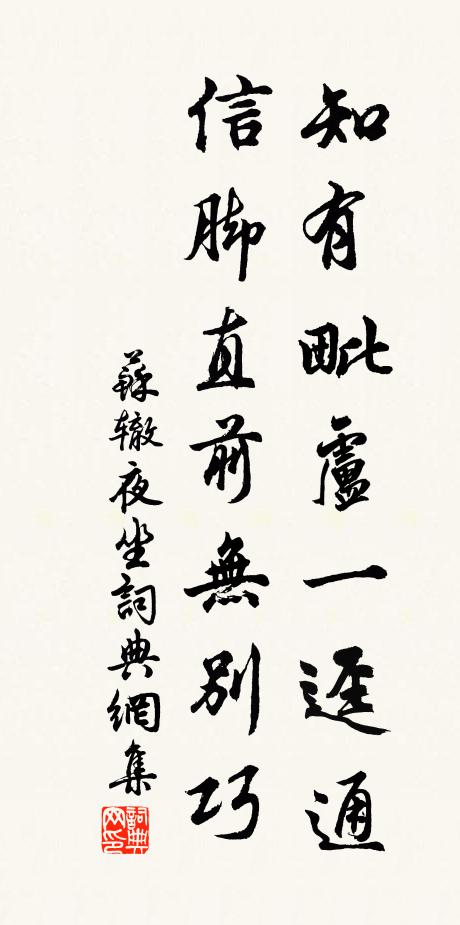 知有毗盧一逕通
信脚直前無別巧
蘇辙夜坐詞典網集
詞典网印